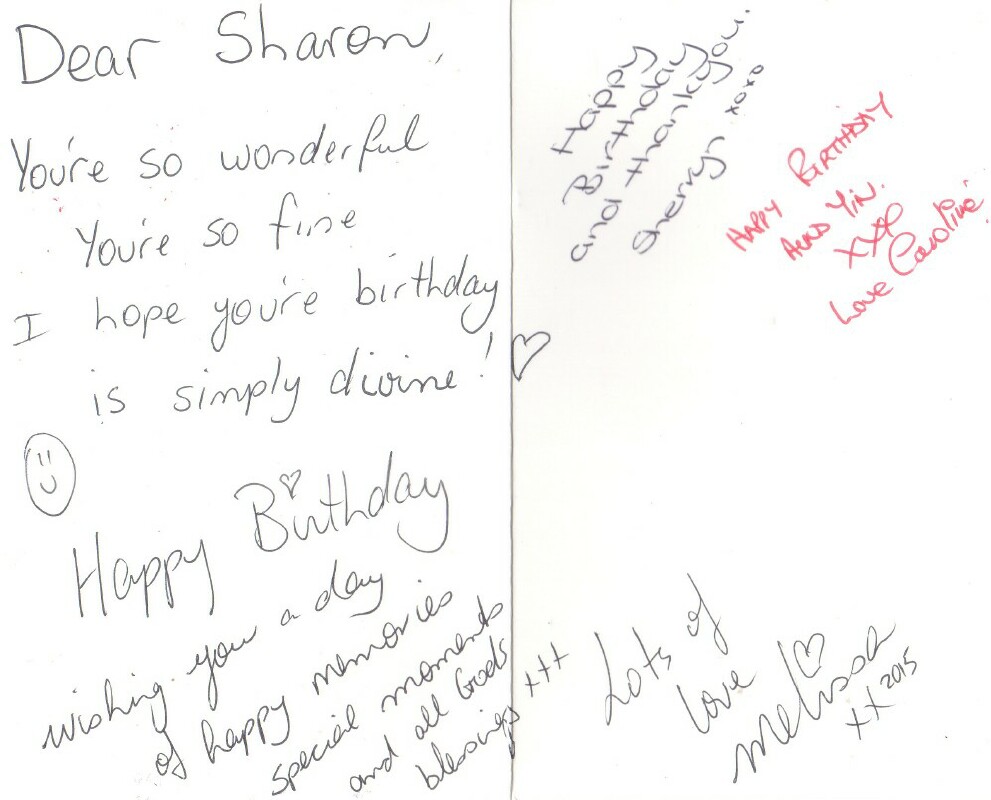 Dear Sharon,
You're so wonderful
You're so fine
I hope you're birthday
is simply divine!
Happy Birthday
wishing you a day
of happy memories
special moments
and all Gods
blessings xxx
Happy
Birthday
and thankyou.
Sherryn xoxo
HAPPY BIRTHDAY
XXX
Love Caroline
Lots of
love
Melissa
xx 2015